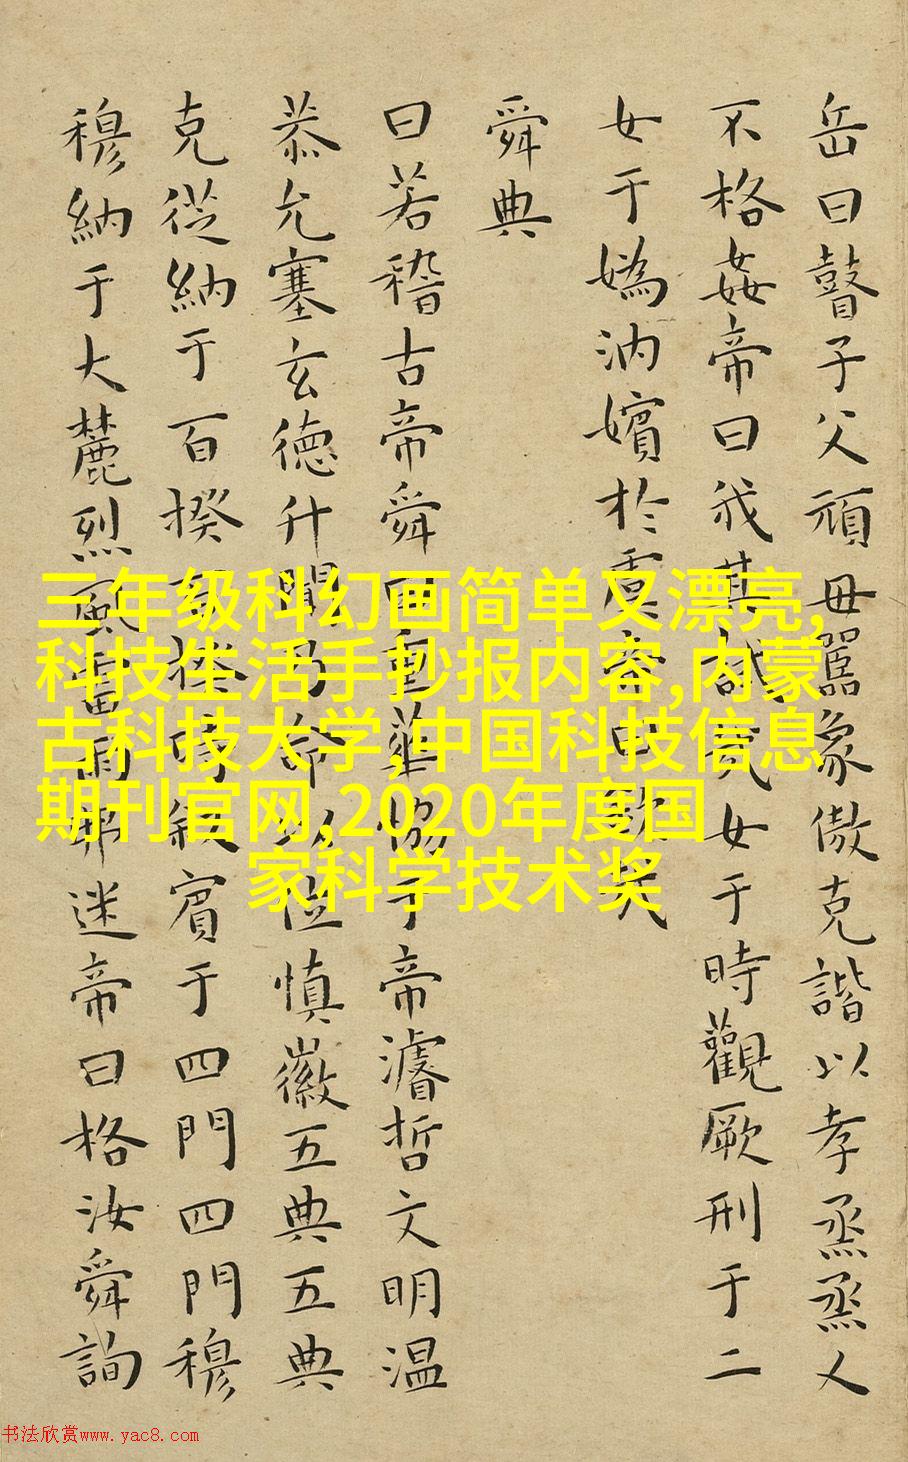 岳曰瞽子父頑毋嚚象傲克諧以孝烝烝乂
不格姦帝曰我其試哉女于時觀厥刑于二
女于媯汭嬪於虞帝曰欽哉
舜典
曰若稽古帝舜曰重華協于帝濬哲文明温
恭允塞玄德升聞乃命以位慎徽五典五典
克從納于百揆百揆時叙賓于四門四門穆
穆納于大麓烈風雷雨弗迷帝曰格汝舜詢
三年级科幻画简单又漂亮,
科技生活手抄报内容,内蒙
古科技大学,中国科技信息
期刊官网,2020年度国
家科学技术奖
书法欣赏www.yac8.com